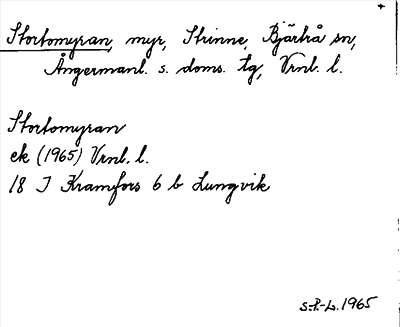 Stortomyran, myr, Strinne, Bjärtrå sn,
Ångermanl. s. doms. tg, Vrnl. l.
Stortomyran
ek (1965) Vrnl. l.
18 I Kramfors 6 b Lungvik
S.P.-L. 1965